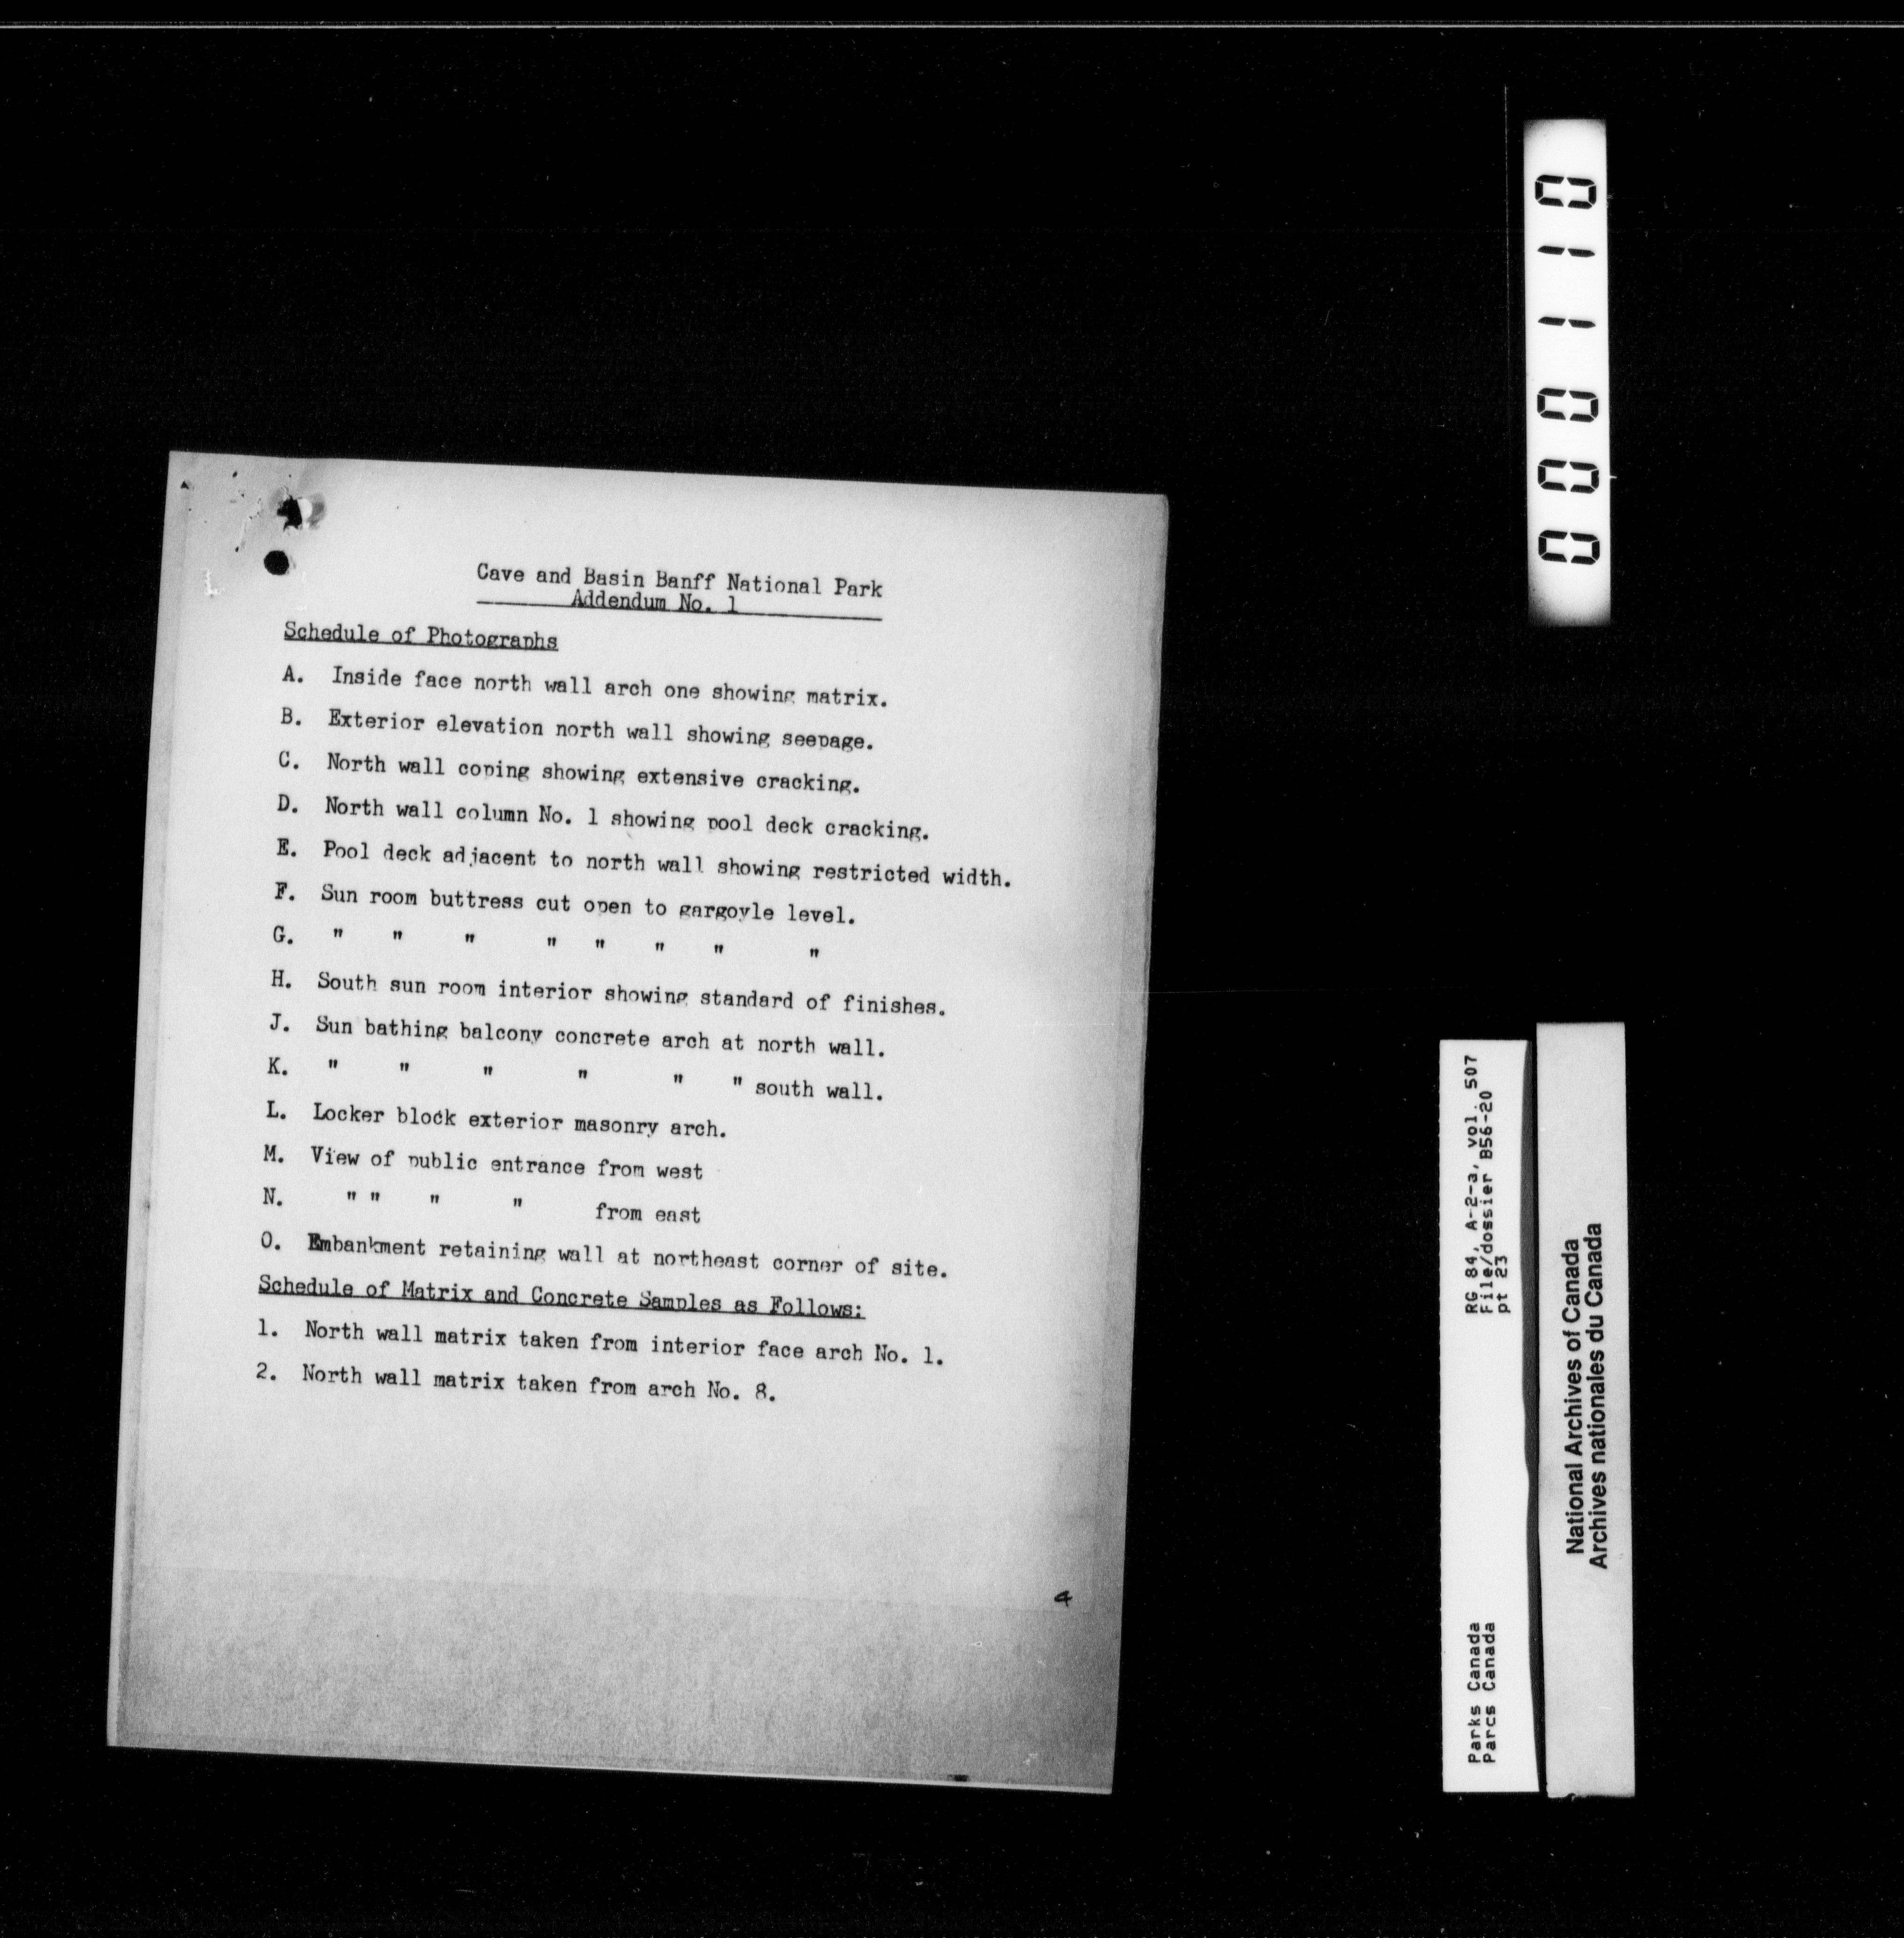 Cave and Basin Banff National Park
Addendum No. 1
Schedule of Photographs
A. Inside face north wall arch one showing matrix.
B. Exterior elevation north wall showing seepage.
C. North wall coping showing extensive cracking.
D. North wall column No. 1 showing pool deck cracking.
E. Pool deck adjacent to north wall showing restricted width.
F. Sun room buttress cut open to gargoyle level.
G. " " " " " " " "
H. South sun room interior showing standard of finishes.
J. Sun bathing balcony concrete arch at north wall.
K. " " " " " " south wall.
L. Locker block exterior masonry arch.
M. View of public entrance from west
N. " " " " from east
O. Embankment retaining wall at northeast corner of site.
Schedule of Matrix and Concrete Samples as Follows:
1. North wall matrix taken from interior face arch No. 1.
2. North wall matrix taken from arch No. 8.
4
000110
RG 84, A-2-a, vol. 507
File/dossier B56-20
pt 23
Parks Canada
Parcs Canada
National Archives of Canada
Archives nationales du Canada